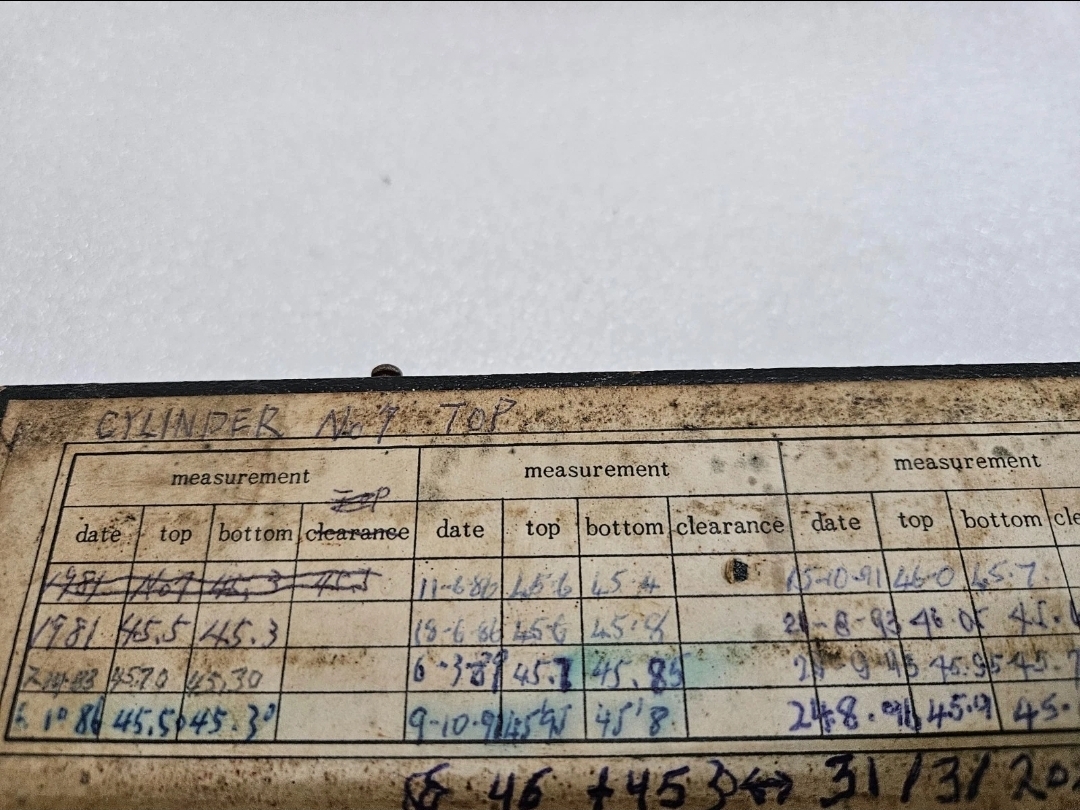 CYLINDER No 7 TOP
measurement measurement measurement
TOP
date top bottom clearance date top bottom clearance date top bottom cle
1981 No7 45.3 45.5 11-6-86 45.6 45.4 15-10-91 46.0 45.7
1981 45.5 45.3 18-6-86 45.6 45.8 8-93 46.05
45.70 45.30 6-3-89 45.7 45.85 9 45.95 45.7
86 45.50 45.30 9-10-91 45.8 24.8. 45.9 45.
46 +45 31/3/20